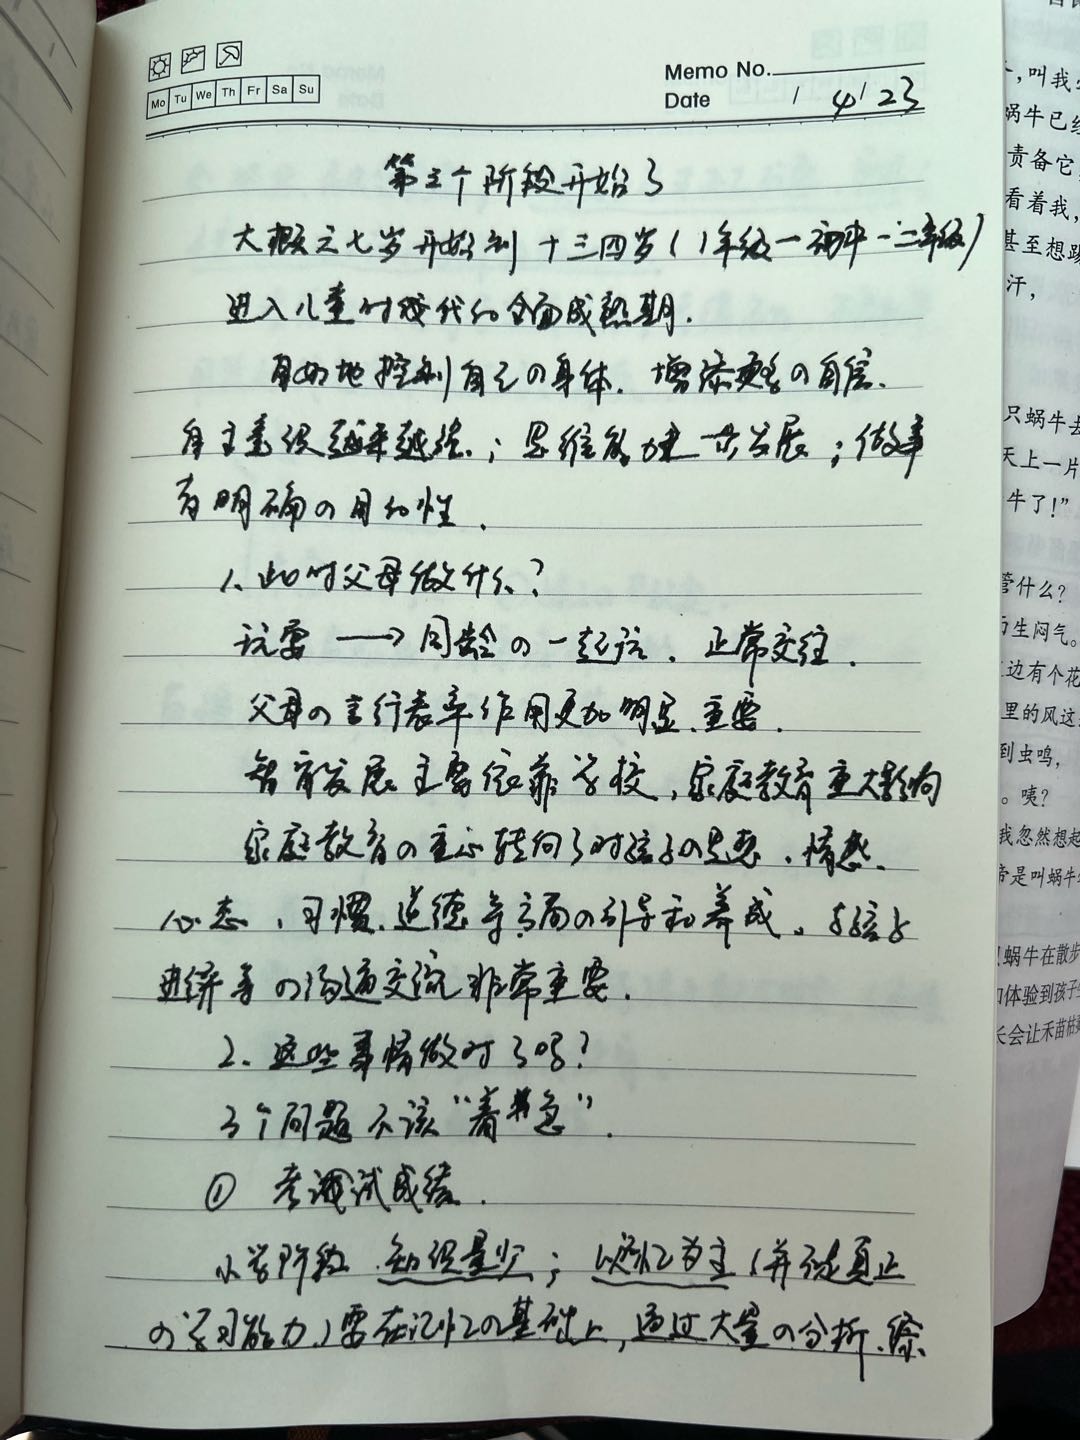 Mo Tu We Th Fr Sa Su
Memo No.
Date / 4/23
第三个阶段开始了
大概六七岁开始到十三四岁(1年级一初中一二年级)
进入儿童时候代的全面成熟期.
自如地控制自己の身体.增添更多の自信.
自主意识越来越强;思维能力进一步发展;做事
有明确の目的性.
1、此时父母做什么?
玩耍→同龄の一起玩.正常交往.
父母の言行表率作用更加明显、主要.
智育发展主要依靠学校,家庭教育重大影响
家庭教育の重心转向了对孩子の失态、情感、
心态、习惯、道德等方面の引导和养成。与孩子
进行等の沟通交流非常重要.
2、这些事情做对了吗?
3个问题不该“着急”.
① 考试成绩.
小学阶段 知识量少;以记忆为主(并不是真正
の学习能力)要在记忆の基础上,通过大量の分析、综
,叫我
蜗牛已经
责备它
看着我,
甚至想踢
汗,
只蜗牛去
天上一片
牛了!”
管什么?
生闷气。
边有个花
里的风这
到虫鸣,
。咦?
我忽然想起
帝是叫蜗牛
蜗牛在散步
体验到孩子
长会让禾苗枯